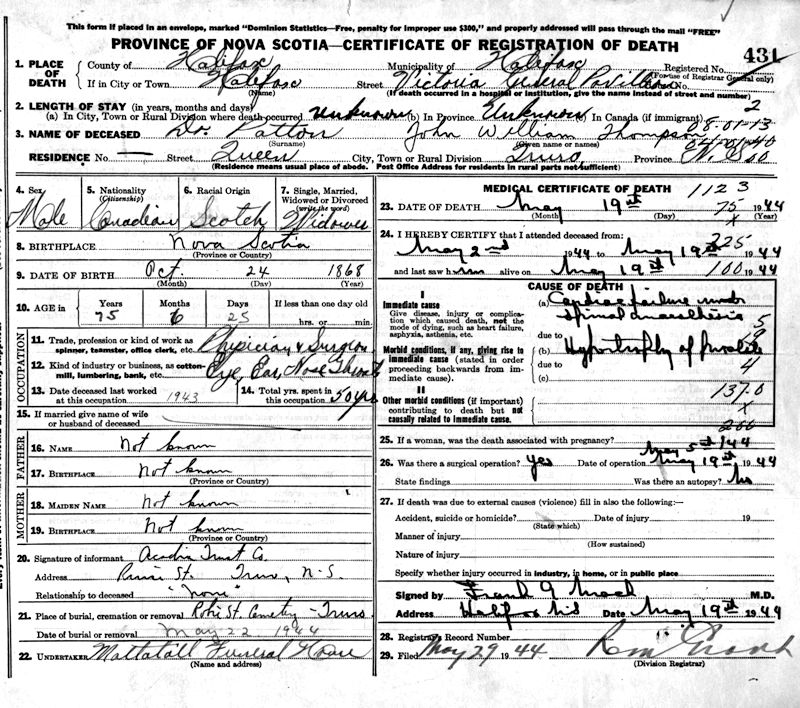 This form if placed in an envelope, marked "Dominion Statistics—Free, penalty for improper use $300," and properly addressed will pass through the mail "FREE"
PROVINCE OF NOVA SCOTIA—CERTIFICATE OF REGISTRATION OF DEATH
431
1. PLACE OF DEATH
County of Halifax Municipality of Halifax Registered No.
(For use of Registrar General only)
If in City or Town Halifax Street Victoria General Pavilion No.
(Name) (If death occurred in a hospital or institution, give the name instead of street and number)
2. LENGTH OF STAY (in years, months and days)
(a) In City, Town or Rural Division where death occurred unknown (b) In Province Unknown In Canada (if immigrant) 2
08-01-13
3. NAME OF DECEASED Dr. Patton John William Thompson
(Surname) (Given name or names)
RESIDENCE No. — Street Queen City, Town or Rural Division Truro Province N.S.
(Residence means usual place of abode. Post Office Address for residents in rural parts not sufficient)
4. Sex Male
5. Nationality (Citizenship) Canadian
6. Racial Origin Scotch
7. Single, Married, Widowed or Divorced (write the word) Widower
8. BIRTHPLACE Nova Scotia
(Province or Country)
9. DATE OF BIRTH Oct. 24 1868
(Month) (Day) (Year)
10. AGE in Years 75 Months 6 Days 25 If less than one day old
hrs. or min.
OCCUPATION
11. Trade, profession or kind of work as spinner, teamster, office clerk, etc. Physician & Surgeon
12. Kind of industry or business, as cotton-mill, lumbering, bank, etc. Eye, Ear, Nose Throat
13. Date deceased last worked at this occupation 1943
14. Total yrs. spent in this occupation 50 yrs
15. If married give name of wife or husband of deceased
FATHER
16. NAME Not known
17. BIRTHPLACE Not known
(Province or Country)
MOTHER
18. MAIDEN NAME Not known
19. BIRTHPLACE Not known
(Province or Country)
20. Signature of informant Acadia Trust Co.
Address Prince St. Truro, N-S.
Relationship to deceased "None"
21. Place of burial, cremation or removal Robie St. Cemetery - Truro
Date of burial or removal May 22 1944
22. UNDERTAKER Mattatall Funeral House
(Name and address)
MEDICAL CERTIFICATE OF DEATH 1123
23. DATE OF DEATH May 19th 1944
75
(Month) (Day) (Year)
x
24. I HEREBY CERTIFY that I attended deceased from:
325
May 2nd 1944 to May 19th 1944
and last saw him alive on May 19th 1944
100
CAUSE OF DEATH
I
Immediate cause
Give disease, injury or complication which caused death, not the mode of dying, such as heart failure, asphyxia, asthenia, etc.
(a) Cardiac failure under spinal anaesthesia
5
9
due to
Morbid conditions, if any, giving rise to immediate cause (stated in order proceeding backwards from immediate cause).
(b) Hypertrophy of prostate
due to 4
(c)
II
Other morbid conditions (if important) contributing to death but not causally related to immediate cause.
137.0
x
200
25. If a woman, was the death associated with pregnancy?
May 5th /44
26. Was there a surgical operation? yes Date of operation May 19th 1944
State findings Was there an autopsy? No
27. If death was due to external causes (violence) fill in also the following:—
Accident, suicide or homicide? Date of injury 19
(State which)
Manner of injury
(How sustained)
Nature of injury
Specify whether injury occurred in industry, in home, or in public place
Signed by Frank G Mack M.D.
Address Halifax N.S Date May 19th 1944
28. Registrar's Record Number
29. Filed May 29 1944
(Division Registrar)